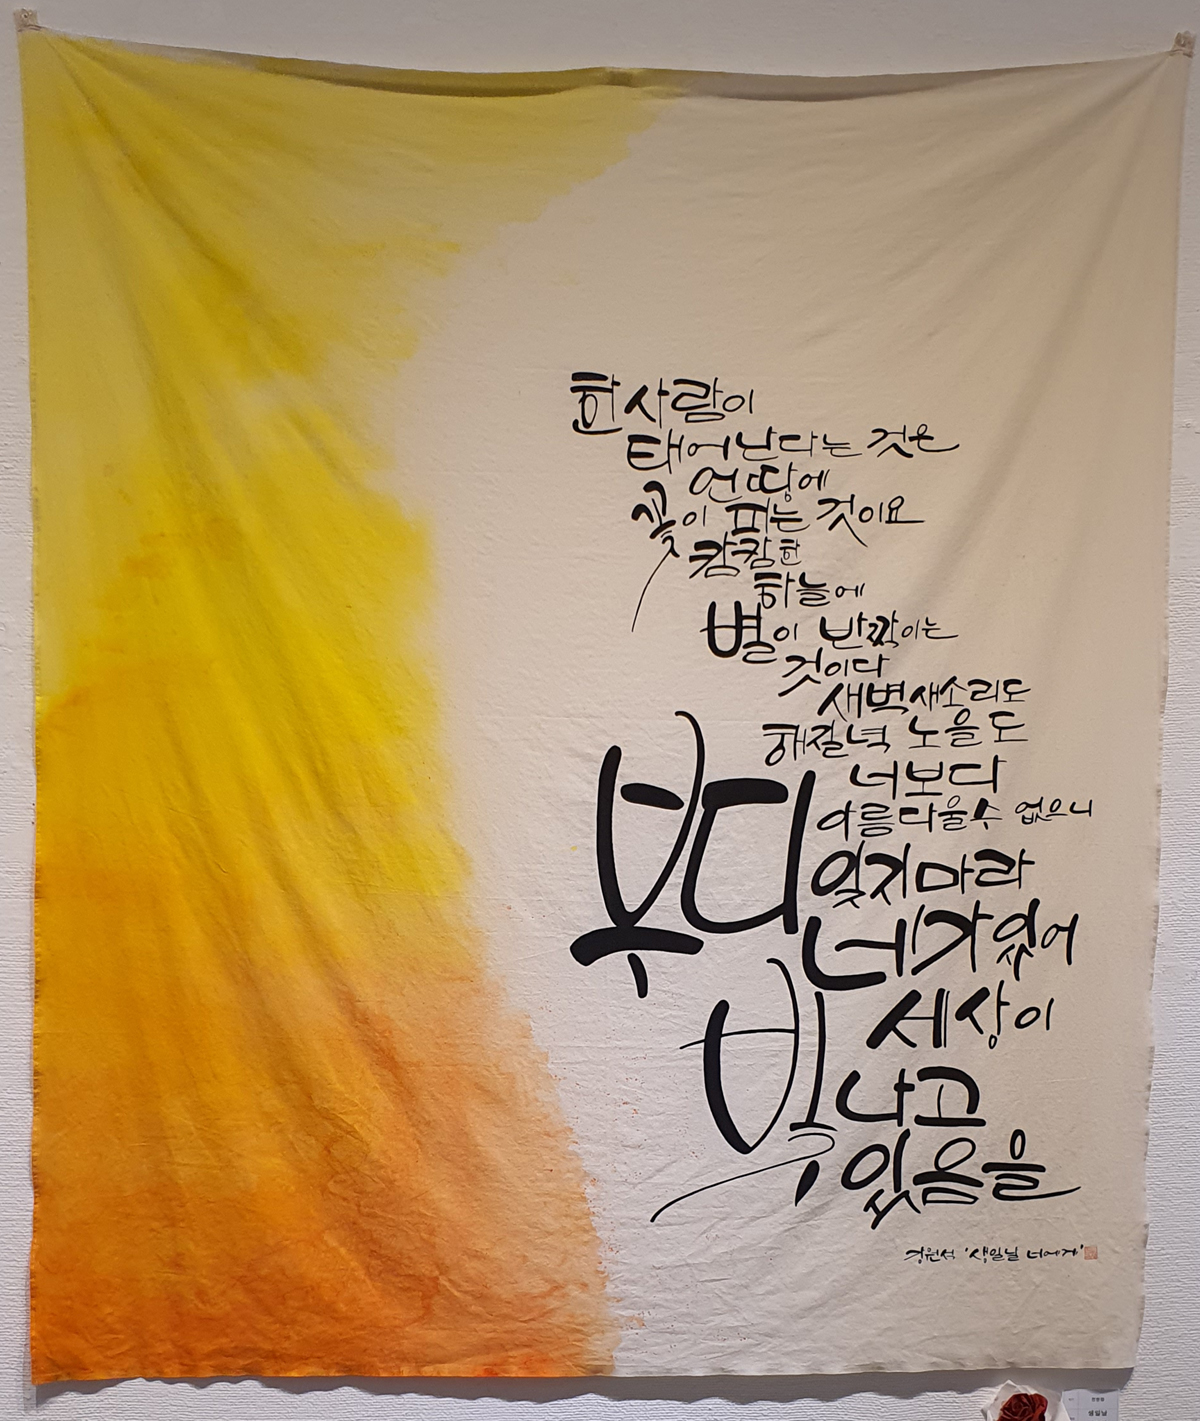 한 사람이
태어난다는 것은
언 땅에
꽃이 피는 것이요
캄캄한
하늘에
별이 반짝이는
것이다
새벽 새소리도
해질녘 노을도
너보다
아름다울 수 없으니
부디 잊지마라
네가 있어
세상이
빛나고
있음을
강원석 '생일날 너에게'
생일날